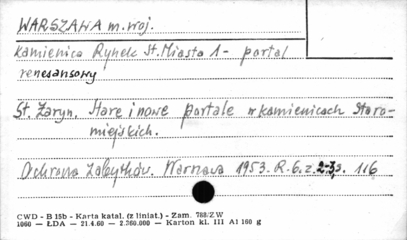 WARSZAWA m. woj.
kamienica Rynek St. Miasta 1 - portal
renesansowy
St. Żaryn. Stare i nowe portale w kamienicach staro-
miejskich.
Ochrona Zabytków. Warszawa 1953. R. 6. z. 2-3, s. 116
CWD - B 15b - Karta katal. (z liniat.) - Zam. 788/Z W
1060 — ŁDA — 21.4.60 — 2.360.000 — Karton kl. III A1 160 g